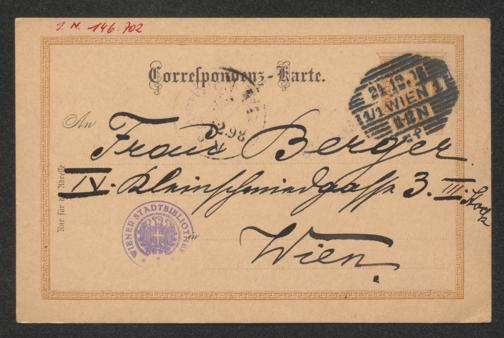 J. N. 146.702
Correspondenz-Karte.
An
Franz Berger
IV. Kleinschmiedgasse 3. III. Stock
in
Wien.
Nur für die Adresse
WIENER STADTBIBLIOTHEK
1/1 WIEN 1
12.98